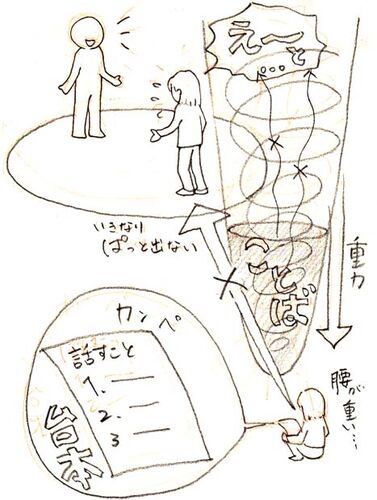 えーと
…
いきなり
ぱっと出ない
ことば
重力
カンペ
話すこと
1.
2.
3
台本
腰が重い…